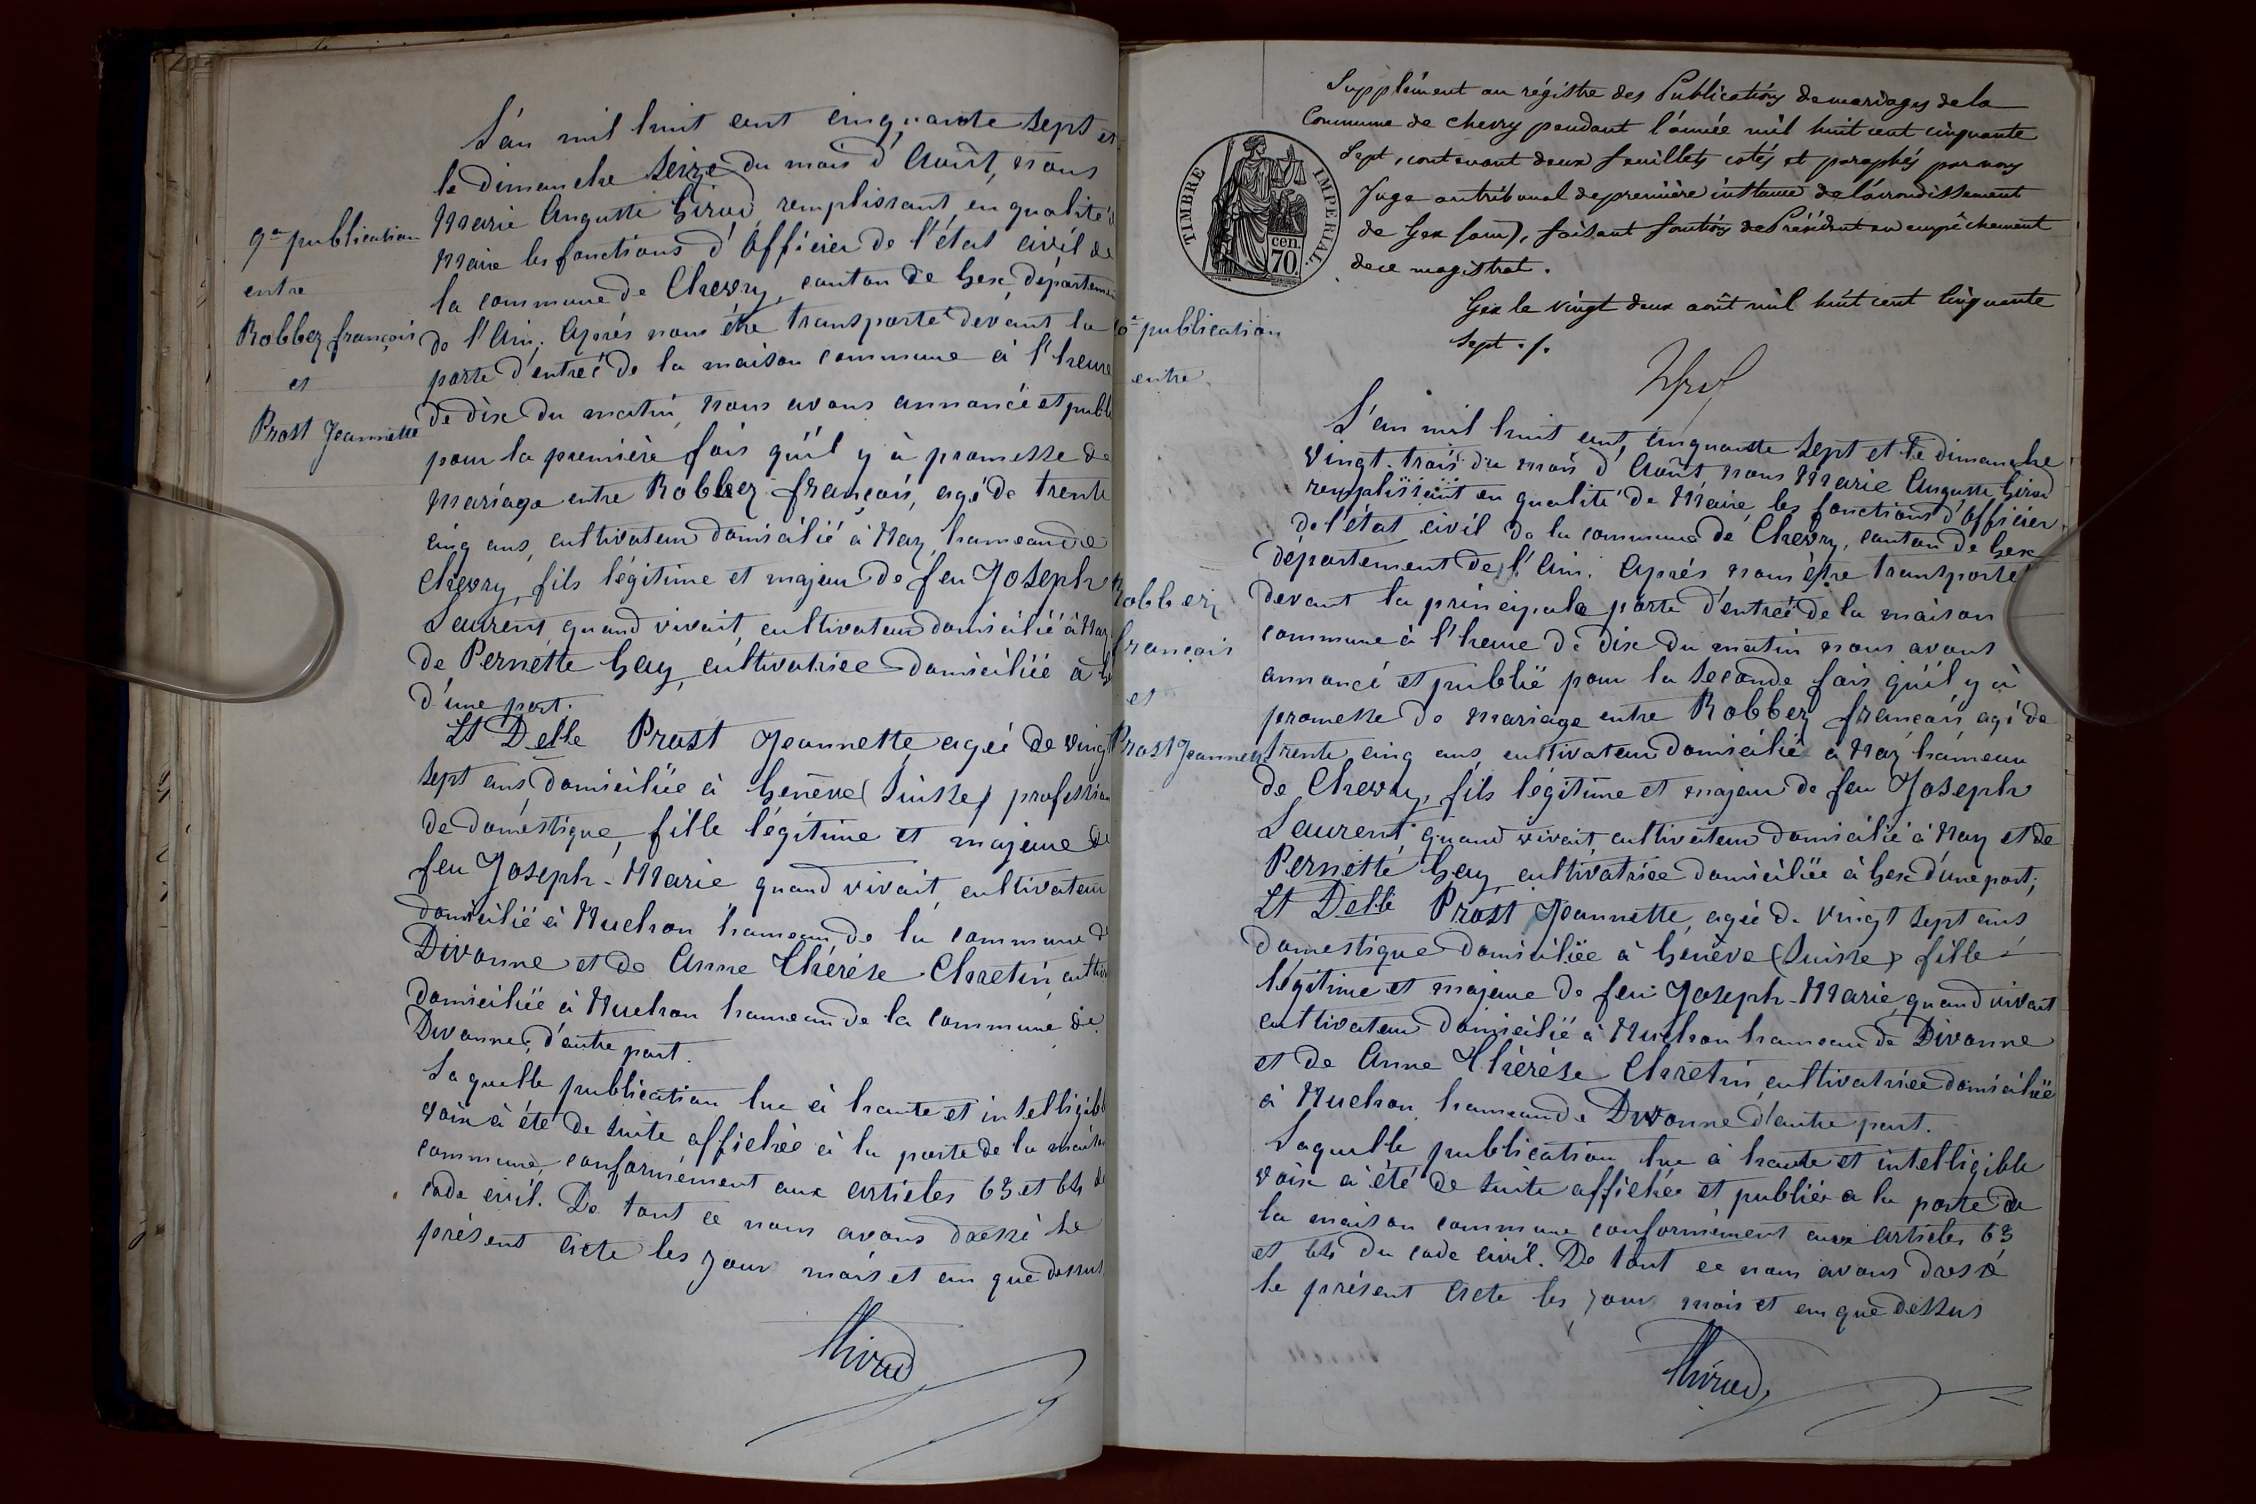 9e publication
entre
Robbez françois
et
Prost Jeannette
L'an mil huit cent cinquante sept et
le dimanche seize du mois d'Août, nous
Marie Auguste Girod, remplissant, en qualité d
Maire les fonctions d'Officier de l'état civil de
la commune de Chevry, canton de Gex, départemen
de l'Ain. Après nous être transporté devant la
porte d'entrée de la maison commune à l'heure
de dix du matin, nous avons annoncé et publ
pour la première fois qu'il y à promesse de
mariage entre Robbez françois, agé de trente
cinq ans, cultivateur domicilié à Naz, hameau de
Chevry, fils légitime et majeur de feu Joseph
Laurent quand vivait, cultivateur domicilié à Naz
de Pernette Gay, cultivatrice domiciliée à Ge
d'une part.
Et Delle Prost Jeannette agée de vingt
sept ans domiciliée à Genève (Suisse) profession
de domestique, fille légitime et majeure de
feu Joseph-Marie quand vivait, cultivateur
domicilié à Muchon hameau de la commune d
Divonne et de Anne Thérèse Chretin, cultiv
domiciliée à Muchon hameau de la commune de
Divonne, d'autre part.
Laquelle publication lue à haute et intelligibl
voix à été de suite affichée à la porte de la maison
commune, conformément aux articles 63 et 64 d
code civil. De tout ce nous avons dressé le
présent acte les jour mois et an que dessus
AGirod
Supplément au régistre des Publications de mariages de la
Commune de Chevry pendant l'année mil huit cent cinquante
Sept, contenant deux feuillets cotés et paraphés par nous
Juge au tribunal de première instance de l'arrondissement
de Gex (ain), faisant fonctions de Président en empêchement
de ce magistrat.
Gex le vingt deux août mil huit cent cinquante
sept ./.
TIMBRE IMPERIAL.
cen.
70.
0e publication
entre
Robbez
françois
et
Prost Jeannett
L'an mil huit cent, cinquante sept et le dimanche
vingt-trois du mois d'Août nous Marie Auguste Girod
remplissant en qualité de Maire, les fonctions d'officier
de l'état civil de la commune de Chevry, canton de Gex
département de l'Ain. Après nous être transporté
devant la principale porte d'entrée de la maison
commune à l'heure de dix du matin nous avons
annoncé et publié pour la seconde fois qu'il y à
promesse de mariage entre Robbez françois, agé de
trente cinq ans, cultivateur domicilié à Naz hameau
de Chevry, fils légitime et majeur de feu Joseph
Laurent, quand vivait, cultivateur domicilié à Naz et de
Pernette Gay cultivatrice domiciliée à Gex d'une part;
Et Delle Prost Jeannette, agée de vingt sept ans
domestique domiciliée à Genève (Suisse) fille
légitime et majeure de feu Joseph-Marie, quand vivait
cultivateur domicilié à Muchon hameau de Divonne
et de Anne Thérèse Chretin, cultivatrice domiciliée
à Muchon, hameau de Divonne d'autre part.
Laquelle publication lue à haute et intelligible
voix à été de suite affichée et publiée a la porte de
la maison commune conformément aux articles 63
et 64 du code civil. De tout ce nous avons dressé
le présent acte les jour mois et an que dessus
AGirod